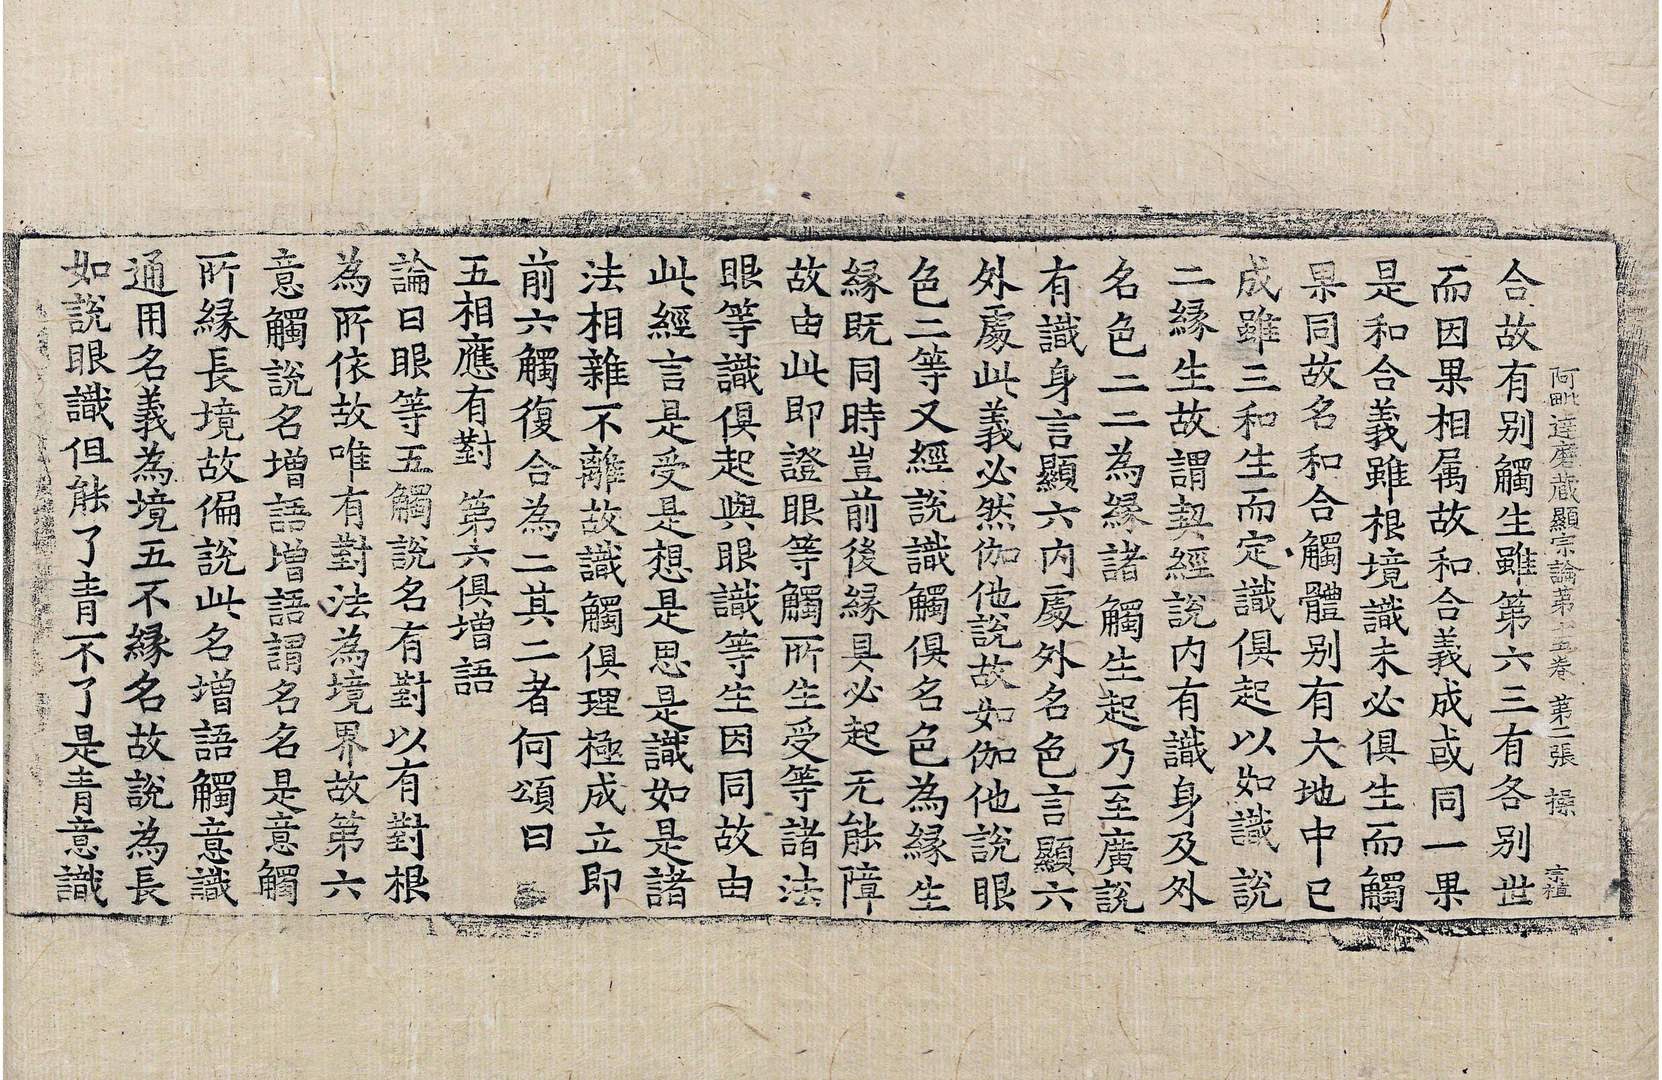 阿毗達磨蔵顯宗論第十五卷 第二張 操 宗植
合故有别觸生雖第六三有各别世
而因果相属故和合義成或同一果
是和合義雖根境識未必俱生而觸
果同故名和合觸體别有大地中已
成雖三和生而定識俱起以如識說
二縁生故謂契經說内有識身及外
名色二二為縁諸觸生起乃至廣說
有識身言顯六内處外名色言顯六
外處此義必然伽他說故如伽他說眼
色二等又經說識觸俱名色為縁生
縁既同時豈前後縁具必起无能障
故由此即證眼等觸所生受等諸法
眼等識俱起與眼識等生因同故由
此經言是受是想是思是識如是諸
法相雜不離故識觸俱理極成立即
前六觸復合為二其二者何頌曰
五相應有對 第六俱増語
論曰眼等五觸說名有對以有對根
為所依故唯有對法為境界故第六
意觸說名増語増語謂名名是意觸
所縁長境故偏說此名増語觸意識
通用名義為境五不縁名故說為長
如說眼識但能了青不了是青意識